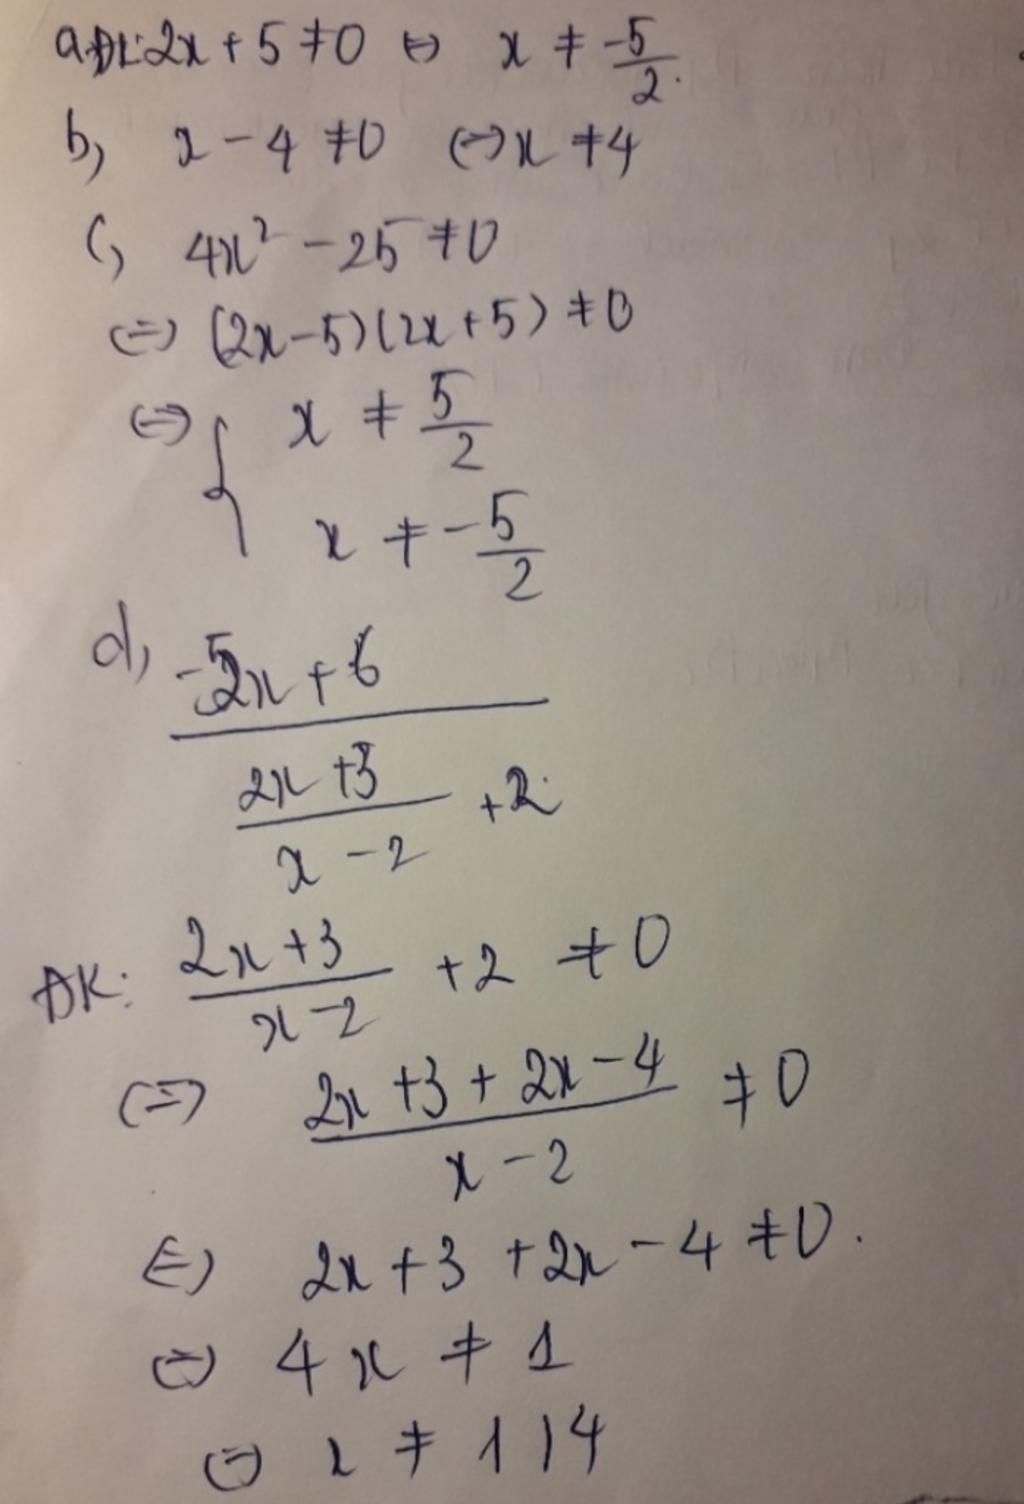 a, ĐK: 2x + 5 ≠ 0 ⇔ x ≠ -5/2.
b, x - 4 ≠ 0 ⇔ x ≠ 4
c, 4x² - 25 ≠ 0
⇔ (2x-5)(2x+5) ≠ 0
⇔ { x ≠ 5/2
x ≠ -5/2
d, (-52x + 6) / ((2x+3)/(x-2) + 2)
ĐK: (2x+3)/(x-2) + 2 ≠ 0
⇔ (2x + 3 + 2x - 4)/(x - 2) ≠ 0
⇔ 2x + 3 + 2x - 4 ≠ 0.
⇔ 4x ≠ 1
⇔ x ≠ 1/4